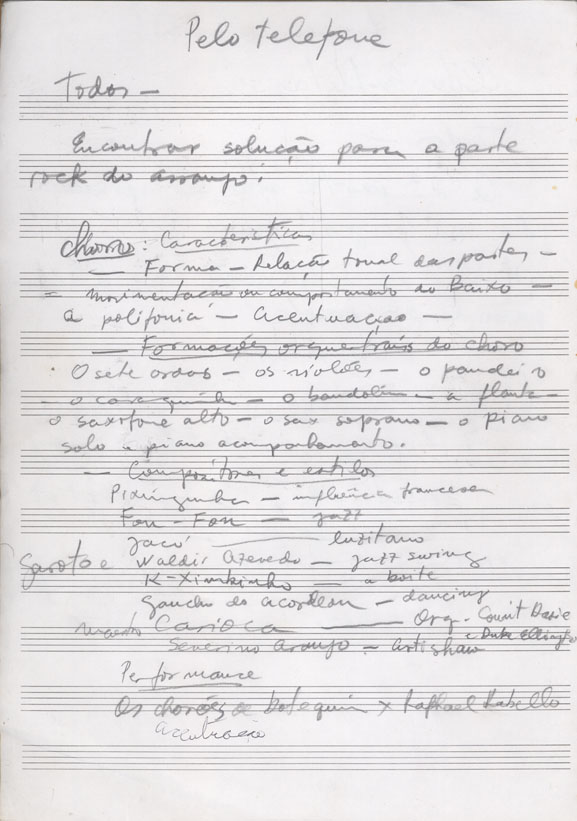 Pelo telefone
Todos —
Encontrar solução para a parte
rock do arranjo!
Chorro: Características
— Forma — Relação tonal das partes —
— movimentação ou comportamento do Baixo —
a polifonia — acentuação —
— Formações orquestrais do choro
O sete cordas — os violões — o pandeiro
— o cavaquinho — o bandolim — a flauta —
o saxifone alto — o sax soprano — o piano
solo e piano acompanhamento.
— Compositores e estilos
Pixinguinha — influência francesa
Fon-Fon — jazz
Jacó — luzitano
Garoto e Waldir Azevedo — jazz swing
K-Ximbinho — a boite
Gaucho do acordeon — dancing
maestro Carioca — Orq. Count Basie
e Duke Ellington
Severino Araujo — Artishaw
Performance
Os chorões de botequim x Raphael Rabello